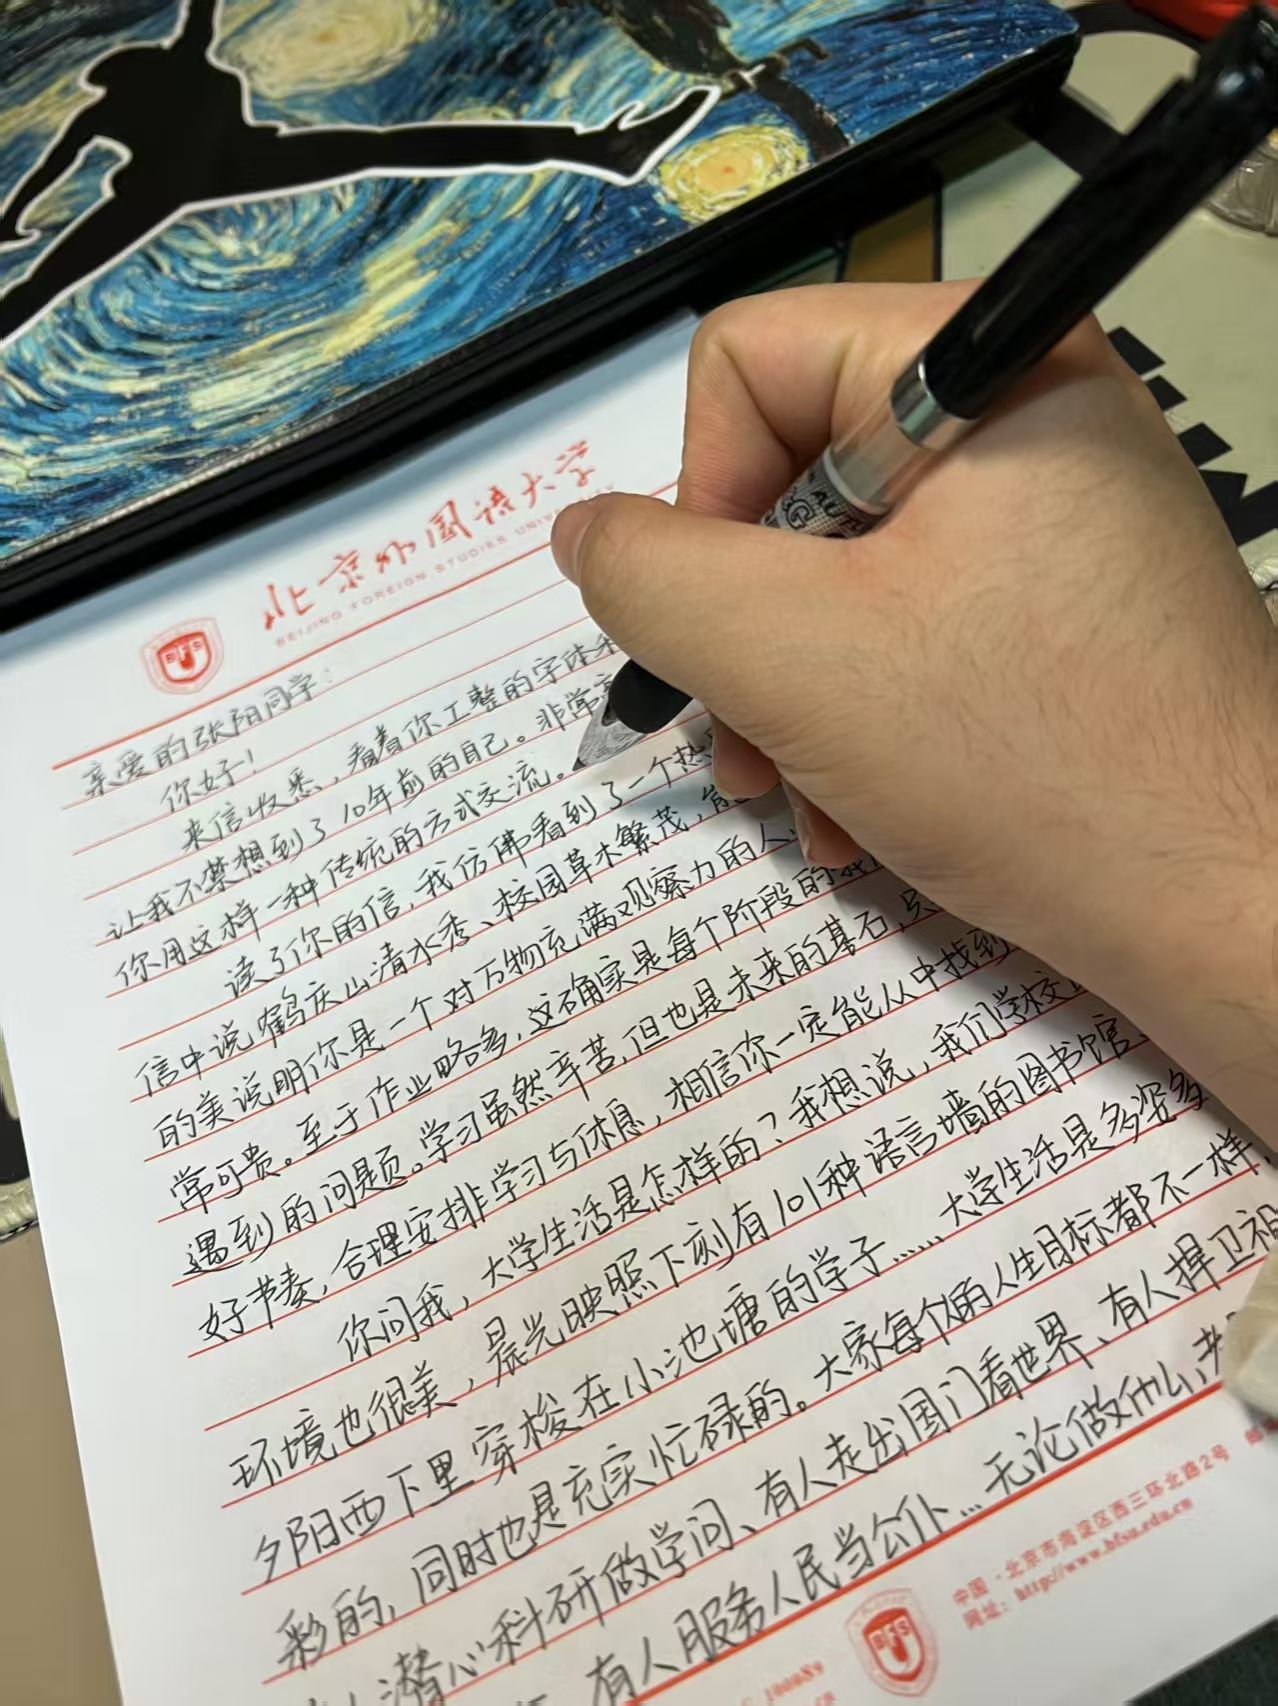 北京外国语大学
BEIJING FOREIGN STUDIES UNIVERSITY
BFS
亲爱的张阳同学:
你好!
来信收悉,看着你工整的字体
让我不禁想到了10年前的自己。非常
你用这样一种传统的方式交流。
读了你的信,我仿佛看到了一个热
信中说鹤庆山清水秀、校园草木繁茂,能
的美说明你是一个对万物充满观察力的人,
常可贵。至于作业略多,这确实是每个阶段的我
遇到的问题。学习虽然辛苦,但也是未来的基石,只
好节奏,合理安排学习与休息,相信你一定能从中找到
你问我,大学生活是怎样的?我想说,我们学校
环境也很美,晨光映照下刻有101种语言墙的图书馆、
夕阳西下里穿梭在小池塘的学子……大学生活是多姿多
彩的,同时也是充实忙碌的。大家每个的人生目标都不一样,
潜心科研做学问、有人走出国门看世界、有人捍卫祖
有人服务人民当公仆…无论做什么,
BFS
中国·北京市海淀区西三环北路2号
网址:http://www.bfsu.edu.cn
100089